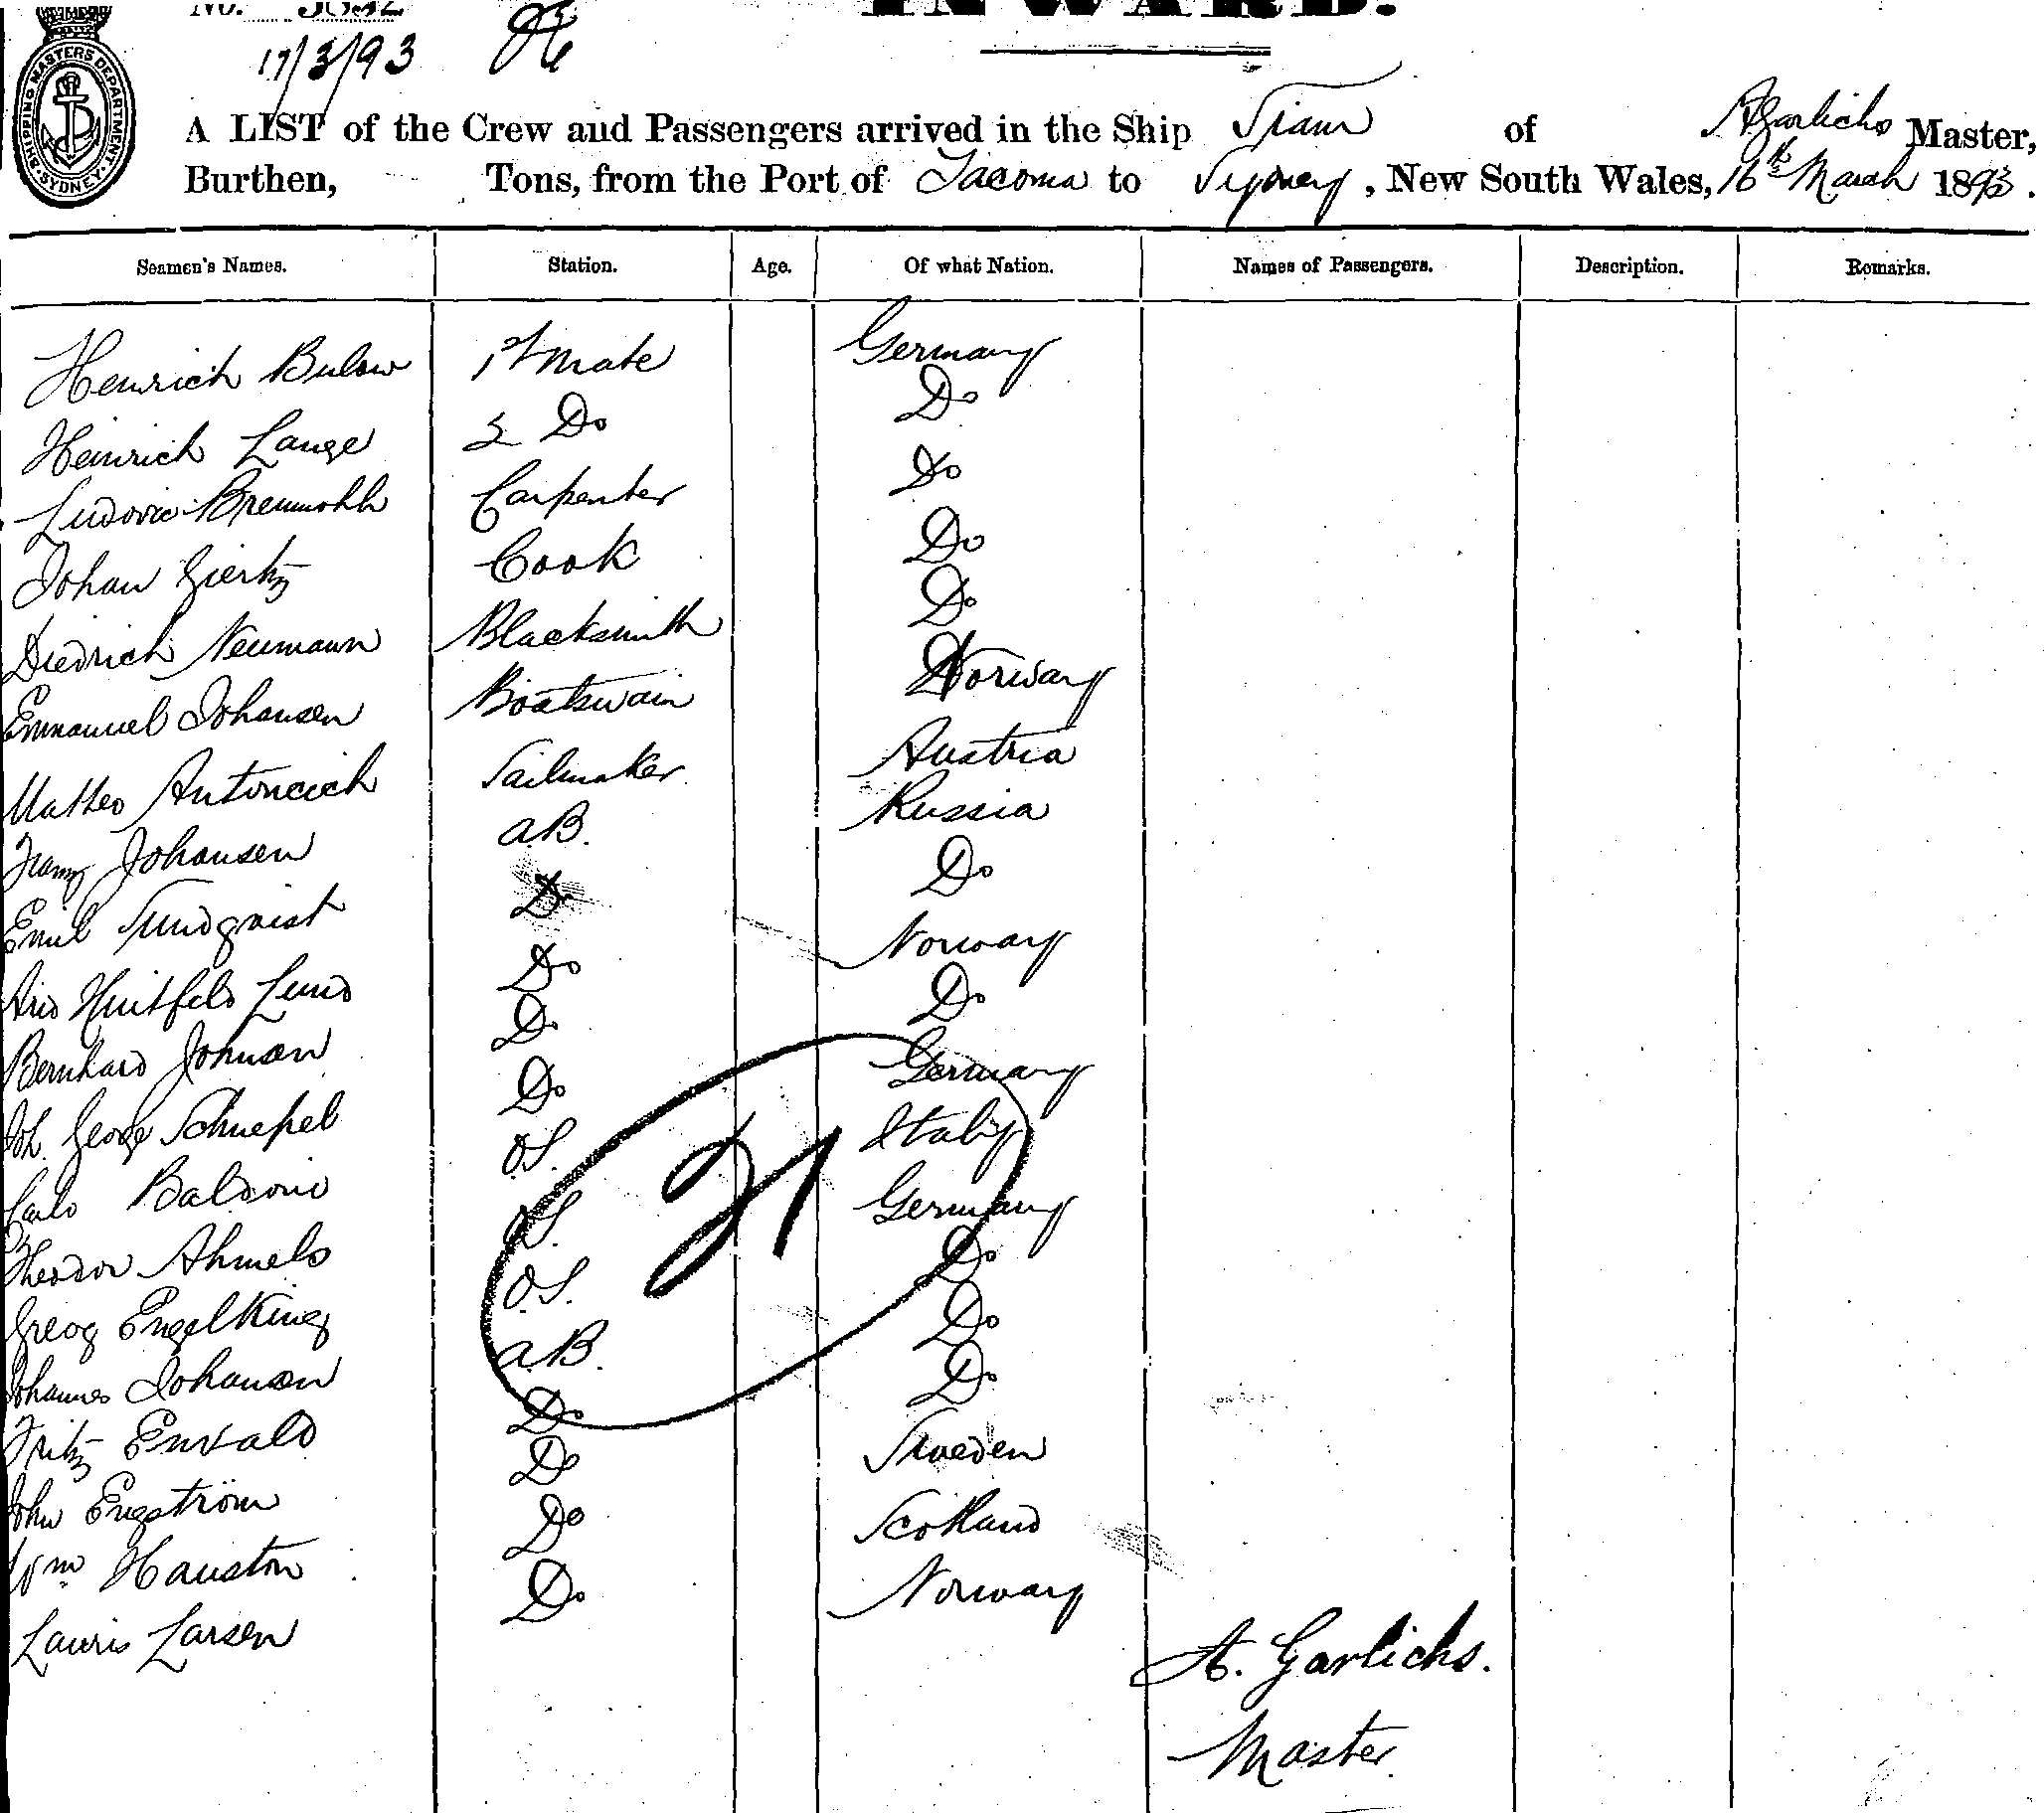 No. 3032
INWARD.
17/3/93
SHIPPING MASTERS DEPARTMENT
SYDNEY
A LIST of the Crew and Passengers arrived in the Ship of A Garlichs Master,
Burthen, Tons, from the Port of Tacoma to Sydney, New South Wales, 16th March 1893.
Seamen's Names. Station. Age. Of what Nation. Names of Passengers. Description. Remarks.
Henrich Bulow 1st Mate Germany
Heinrich Lange 2 Do Do
Ludovic Carpenter Do
Johan Giertz Cook Do
Diedrich Neumann Blacksmith Do
Emmanuel Johansen Boatswain Norway
Matteo Antoncich Sailmaker Austria
Franz Johansen A.B. Russia
Emil Sundqvist Do Do
Huitfeld Lund Do Norway
Bernhard Johnsen Do Do
Joh. George Schnepel Do Germany
Carlo O.S. Italy
Theodor Ahmels O.S. Germany
Engelking O.S. Do
Johannes Johansen A.B. Do
Fritz Do Do
John Engström Do Sweden
Wm Hauston Do Scotland
Lauris Larsen Do Norway
21
A. Garlichs.
Master